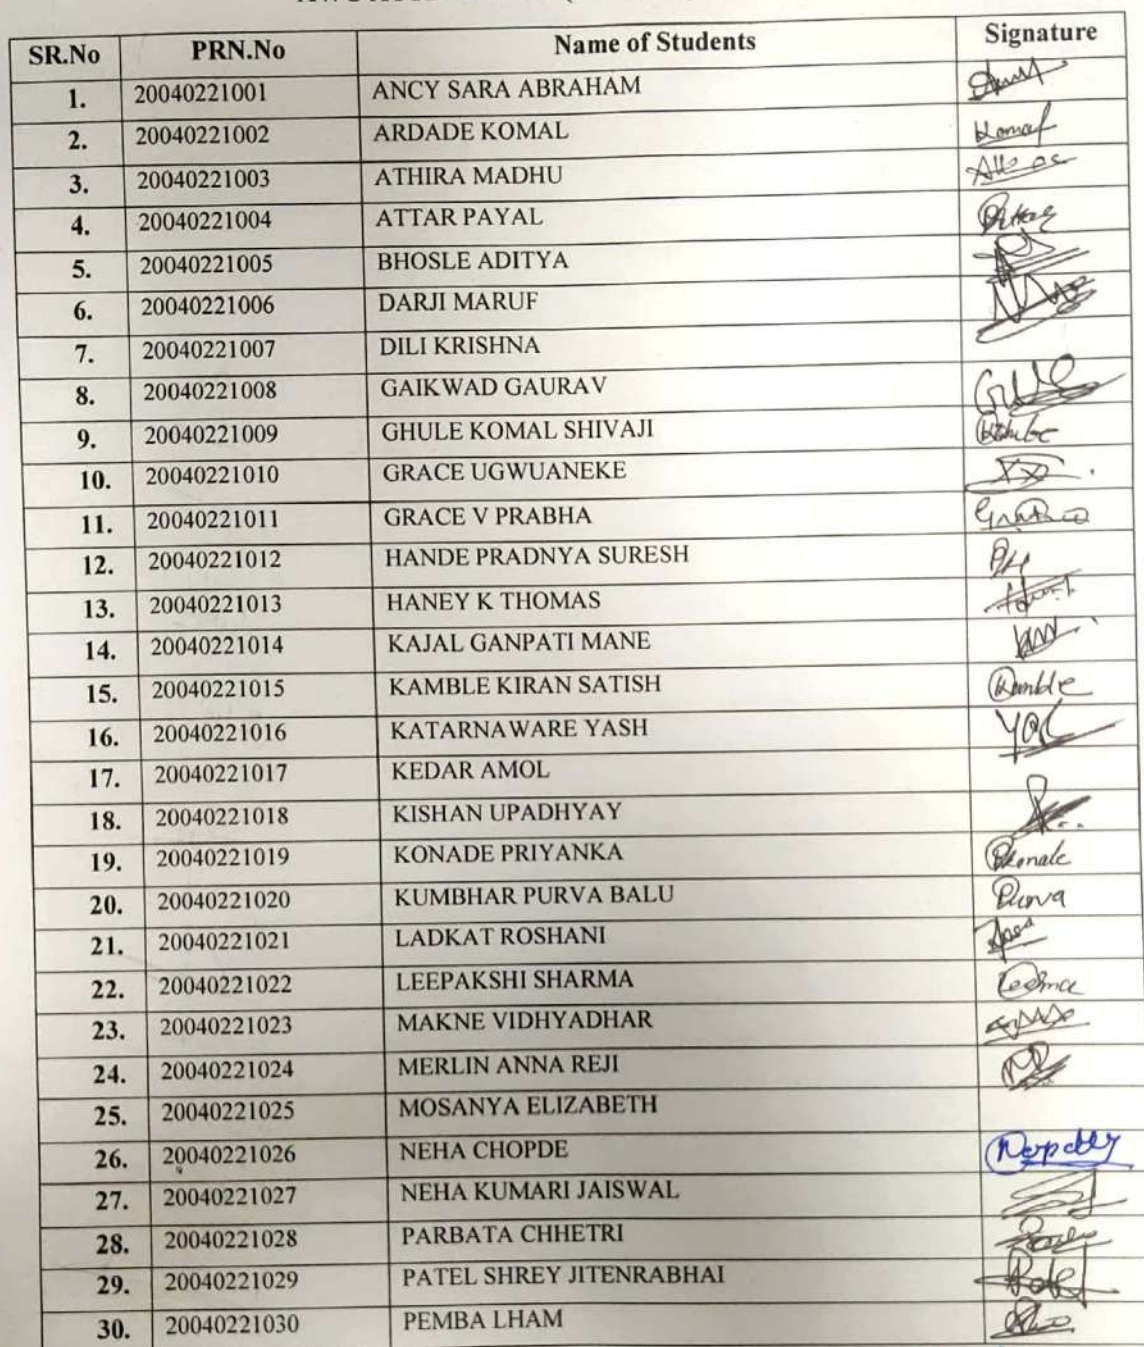 SR.No PRN.No Name of Students Signature
1. 20040221001 ANCY SARA ABRAHAM
2. 20040221002 ARDADE KOMAL Komal
3. 20040221003 ATHIRA MADHU
4. 20040221004 ATTAR PAYAL
5. 20040221005 BHOSLE ADITYA
6. 20040221006 DARJI MARUF
7. 20040221007 DILI KRISHNA
8. 20040221008 GAIKWAD GAURAV
9. 20040221009 GHULE KOMAL SHIVAJI
10. 20040221010 GRACE UGWUANEKE
11. 20040221011 GRACE V PRABHA
12. 20040221012 HANDE PRADNYA SURESH
13. 20040221013 HANEY K THOMAS
14. 20040221014 KAJAL GANPATI MANE
15. 20040221015 KAMBLE KIRAN SATISH Kamble
16. 20040221016 KATARNAWARE YASH
17. 20040221017 KEDAR AMOL
18. 20040221018 KISHAN UPADHYAY
19. 20040221019 KONADE PRIYANKA
20. 20040221020 KUMBHAR PURVA BALU Purva
21. 20040221021 LADKAT ROSHANI
22. 20040221022 LEEPAKSHI SHARMA
23. 20040221023 MAKNE VIDHYADHAR
24. 20040221024 MERLIN ANNA REJI
25. 20040221025 MOSANYA ELIZABETH
26. 20040221026 NEHA CHOPDE
27. 20040221027 NEHA KUMARI JAISWAL
28. 20040221028 PARBATA CHHETRI
29. 20040221029 PATEL SHREY JITENRABHAI
30. 20040221030 PEMBA LHAM